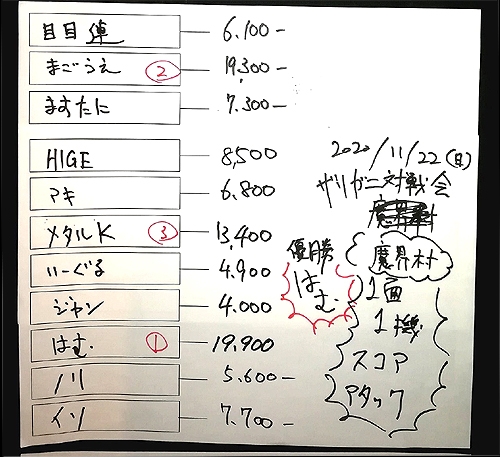 目目連 6,100-
まごうえ ② 19,300-
ますたに 7,300-
HIGE 8,500
アキ 6,800
メタルK ③ 13,400
いーぐる 4,900
ジャン 4,000
はむ ① 19,900
ノリ 5,600-
イソ 7,700-
2020/11/22(日)
ザリガニ対戦会
魔界村
1面
1機
スコア
アタック
優勝
はむ